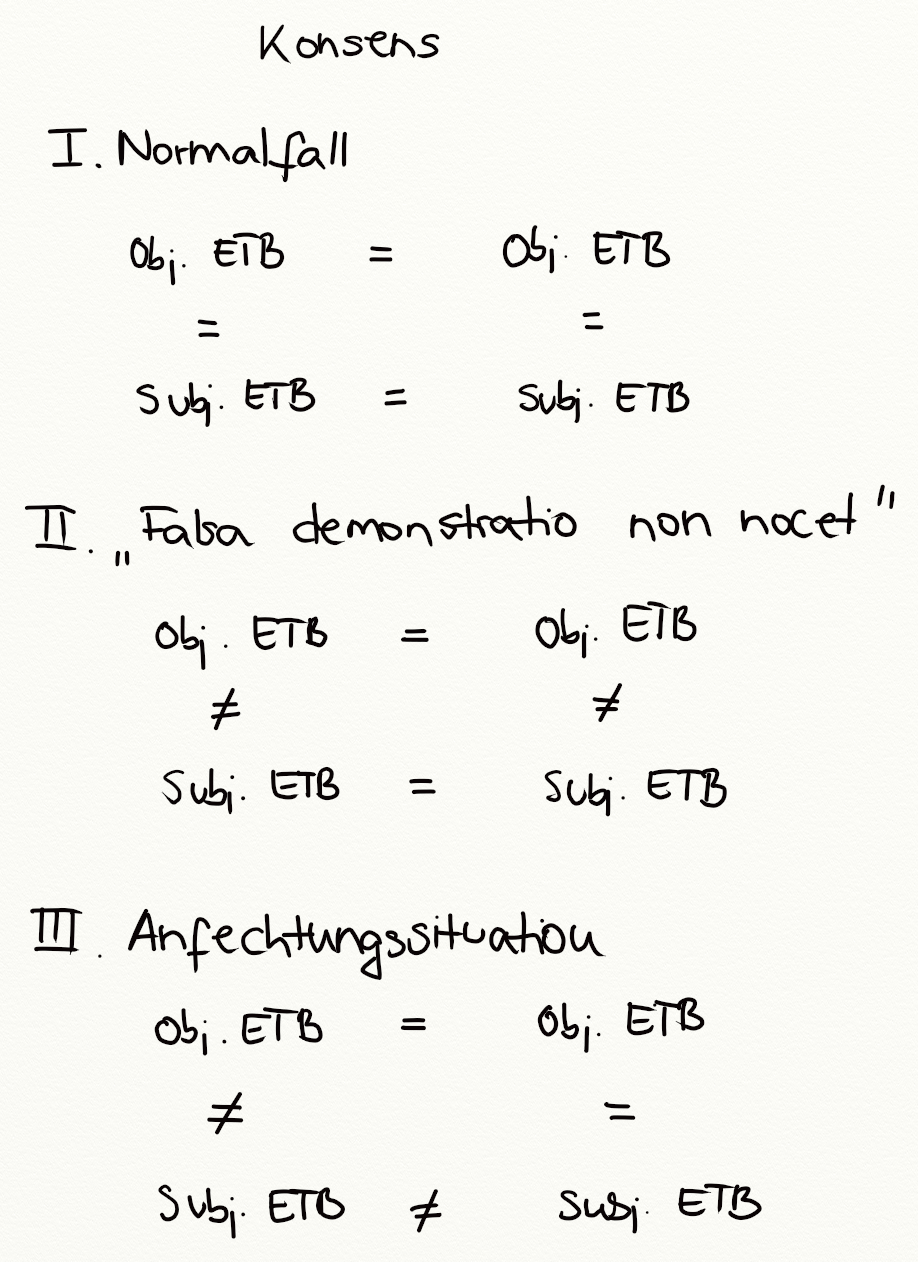 Konsens
I. Normalfall
Obj. ETB = Obj. ETB
= =
Subj. ETB = Subj. ETB
II. „Falsa demonstratio non nocet"
Obj. ETB = Obj. ETB
≠ ≠
Subj. ETB = Subj. ETB
III. Anfechtungssituation
Obj. ETB = Obj. ETB
≠ =
Subj. ETB ≠ Subj. ETB